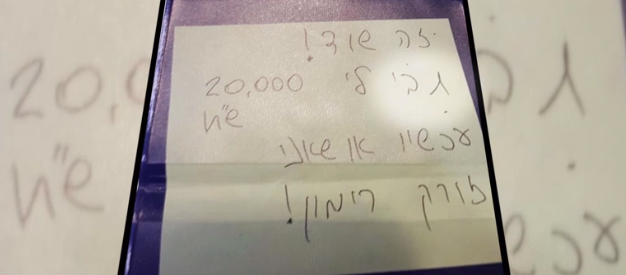 זה שוד!
תבי לי 20,000
ש"ח
עכשיו או שאני
זורק רימון!